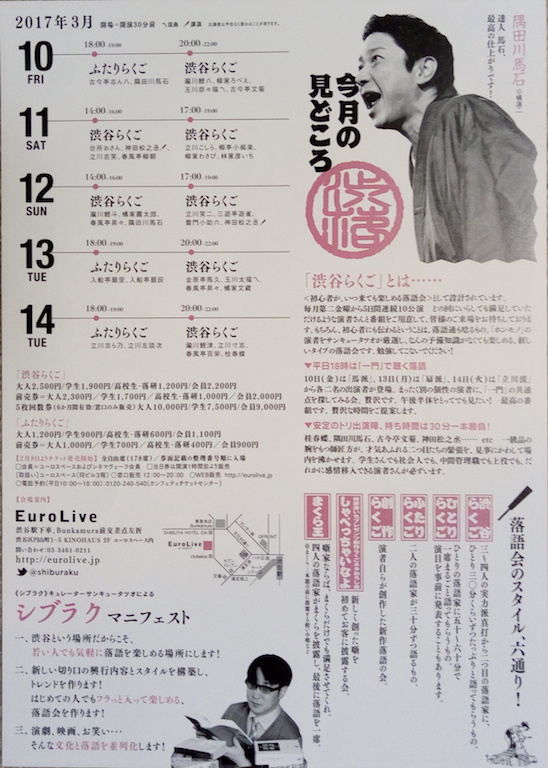 2017年3月
開場＝開演30分前
10
FRI
18:00-19:00
ふたりらくご
古今亭志ん八、隅田川馬石
20:00-22:00
渋谷らくご
瀧川鯉八、柳家ろべえ、
玉川奈々福、古今亭文菊
11
SAT
14:00-16:00
渋谷らくご
台所おさん、神田松之丞
立川吉笑、春風亭柳朝
17:00-19:00
渋谷らくご
立川こしら、柳亭小痴楽、
柳家わさび、林家彦いち
12
SUN
14:00-16:00
渋谷らくご
瀧川鯉斗、橘家圓太郎、
春風亭昇々、隅田川馬石
17:00-19:00
渋谷らくご
立川笑二、三遊亭遊雀、
雷門小助六、神田松之丞
13
TUE
18:00-19:00
ふたりらくご
入船亭扇里、入船亭扇辰
20:00-22:00
渋谷らくご
金原亭馬久、玉川太福、
春風亭昇々、橘家文蔵
14
TUE
18:00-19:00
ふたりらくご
立川志ら乃、立川左談次
20:00-22:00
渋谷らくご
瀧川鯉津、立川寸志、
春風亭百栄、桂春蝶
「渋谷らくご」
大人2,500円/学生1,900円/高校生・落研1,200円/会員2,200円
前売券＝大人2,300円/学生1,700円/高校生・落研1,000円/会員2,000円
5枚回数券（6か月間有効/窓口のみ販売）大人10,000円/学生7,500円/会員9,000円
「ふたりらくご」
大人1,200円/学生900円/高校生・落研600円/会員1,100円
前売券＝大人1,000円/学生700円/高校生・落研400円/会員900円
【2月8日よりチケット発売開始】 全自由席（178席）/券面記載の整理番号順に入場
□会員＝ユーロスペースおよびシネマヴェーラ会員 □当日券は開演1時間前より販売
【取扱い】ユーロスペース（同ビル3階） □窓口販売 12:00〜20:00 □WEB販売 http://eurolive.jp
□電話予約（平日10:00〜18:00）：0120-240-540（カンフェティチケットセンター）
【会場案内】
EuroLive
渋谷駅下車、Bunkamura前交差点左折
渋谷区円山町1-5 KINOHAUS 2F ユーロスペース内
問い合わせ：03-3461-0211
http://eurolive.jp
@shiburaku
東急本店
Bunkamura
SHIBUYA HOTEL EN
EuroLive
《シブラク》キュレーターサンキュータツオによる
シブラク マニフェスト
一、渋谷という場所だからこそ、
若い人でも気軽に落語を楽しめる場所にします！
二、新しい切り口の興行内容とスタイルを構築し、
トレンドを作ります！
はじめての人でもフラっと入って楽しめる、
落語会を作ります！
三、演劇、映画、お笑い…
そんな文化と落語を並列化します！
隅田川馬石
達人 馬石、
最高の仕上がりです！
今月の
見どころ
渋楽
「渋谷らくご」とは……
＜初心者が、いつ来ても楽しめる落語会＞として設計されています。
毎月第二金曜から5日間連続10公演
▼平日18時は「一門」で聴く落語
10日（金）は「馬派」、13日（月）は「扇派」、14日（火）は「立川流」
から各二名の出演者が登場。
▼安定のトリ出演陣、持ち時間は30分一本勝負！
桂春蝶、隅田川馬石、古今亭文菊、神田松之丞…… etc
だれかに感情移入できる演者さんが必ずいます。
落語会のスタイル、六通り！
渋谷らくご
三〜四人の実力派真打から二つ目の落語家に、
ひとり三〇分くらいずつたっぷりと語ってもらうもの。
ひとりらくご
ひとりの落語家に五十〜六十分で
一席まるごと語ってもらうもの。
演目を事前に発表することもあります。
ふたりらくご
二人の落語家が三十分ずつ語るもの。
創作らくご
演者自らが創作した新作落語の会。
しゃべっちゃいなよ
新しく創った噺を
初めてお客に披露する会。
まくら王
噺家ならば、まくらだけでも満足させてくれ。
四人の落語家がまくらを披露し、最後に落語を一席。